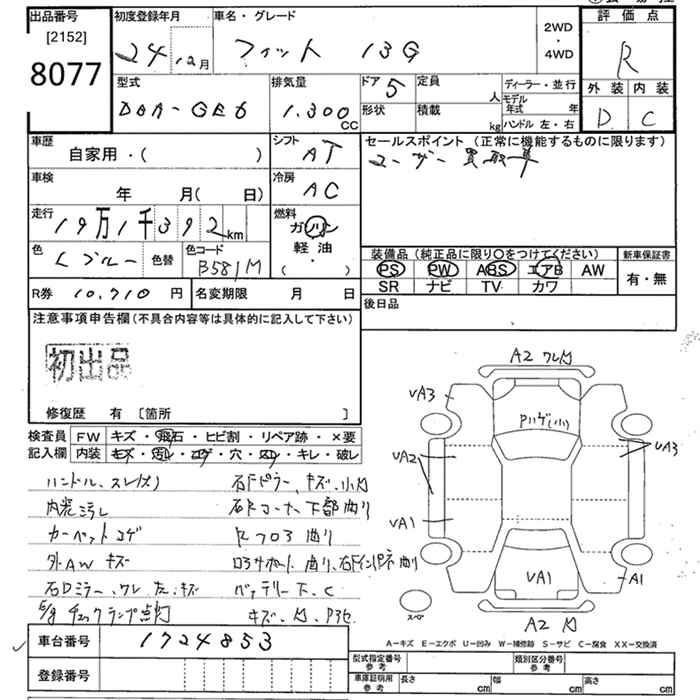 出品番号 初度登録年月 車名・グレード 2WD 評価点
[2152] 24 12月 フィット 13G ・ R
8077 4WD
型式 排気量 ドア 5 定員 人 ディーラー・並行 外装 内装
DBA-GE6 1.300 CC 形状 積載 kg モデル年式 年 D C
ハンドル 左・右
車歴 シフト AT セールスポイント (正常に機能するものに限ります)
自家用・( ) ユーザー買取車
車検 冷房 AC
年 月( 日)
走行 19万1千392km 燃料 ガソリン
軽油
( ・ )
色 Lブルー 色替 色コード B581M 装備品 (純正品に限り○をつけてください) 新車保証書
PS PW ABS エアB AW 有・無
SR ナビ TV カワ
R券 10,710 円 名変期限 月 日 後日品
注意事項申告欄(不具合内容等は具体的に記入して下さい)
初出品
修復歴 有 [箇所 ]
検査員 FW キズ・飛石・ヒビ割・リペア跡・×要
記入欄 内装 キズ・汚レ・コゲ・穴・凹・キレ・破レ
ハンドル、スレ(大) 石Fピラー、キズ、小凹
内装汚レ
カーペットコゲ Rフロア曲り
外AWキズ
石Dミラー、ワレ、左、キズ バッテリー下、C
チェックランプ点灯
A2 ワレ凹
VA3
Pハゲ(小)
VA3
VA2
VA1
VA1
A1
スペア
A2 凹
車台番号 1724853
A-キズ E-エクボ U-凹み W-補修跡 S-サビ C-腐食 XX-交換済
登録番号
型式指定番号 参考 類別区分番号 参考
車庫証明用 参考 長さ cm 幅 cm 高さ cm